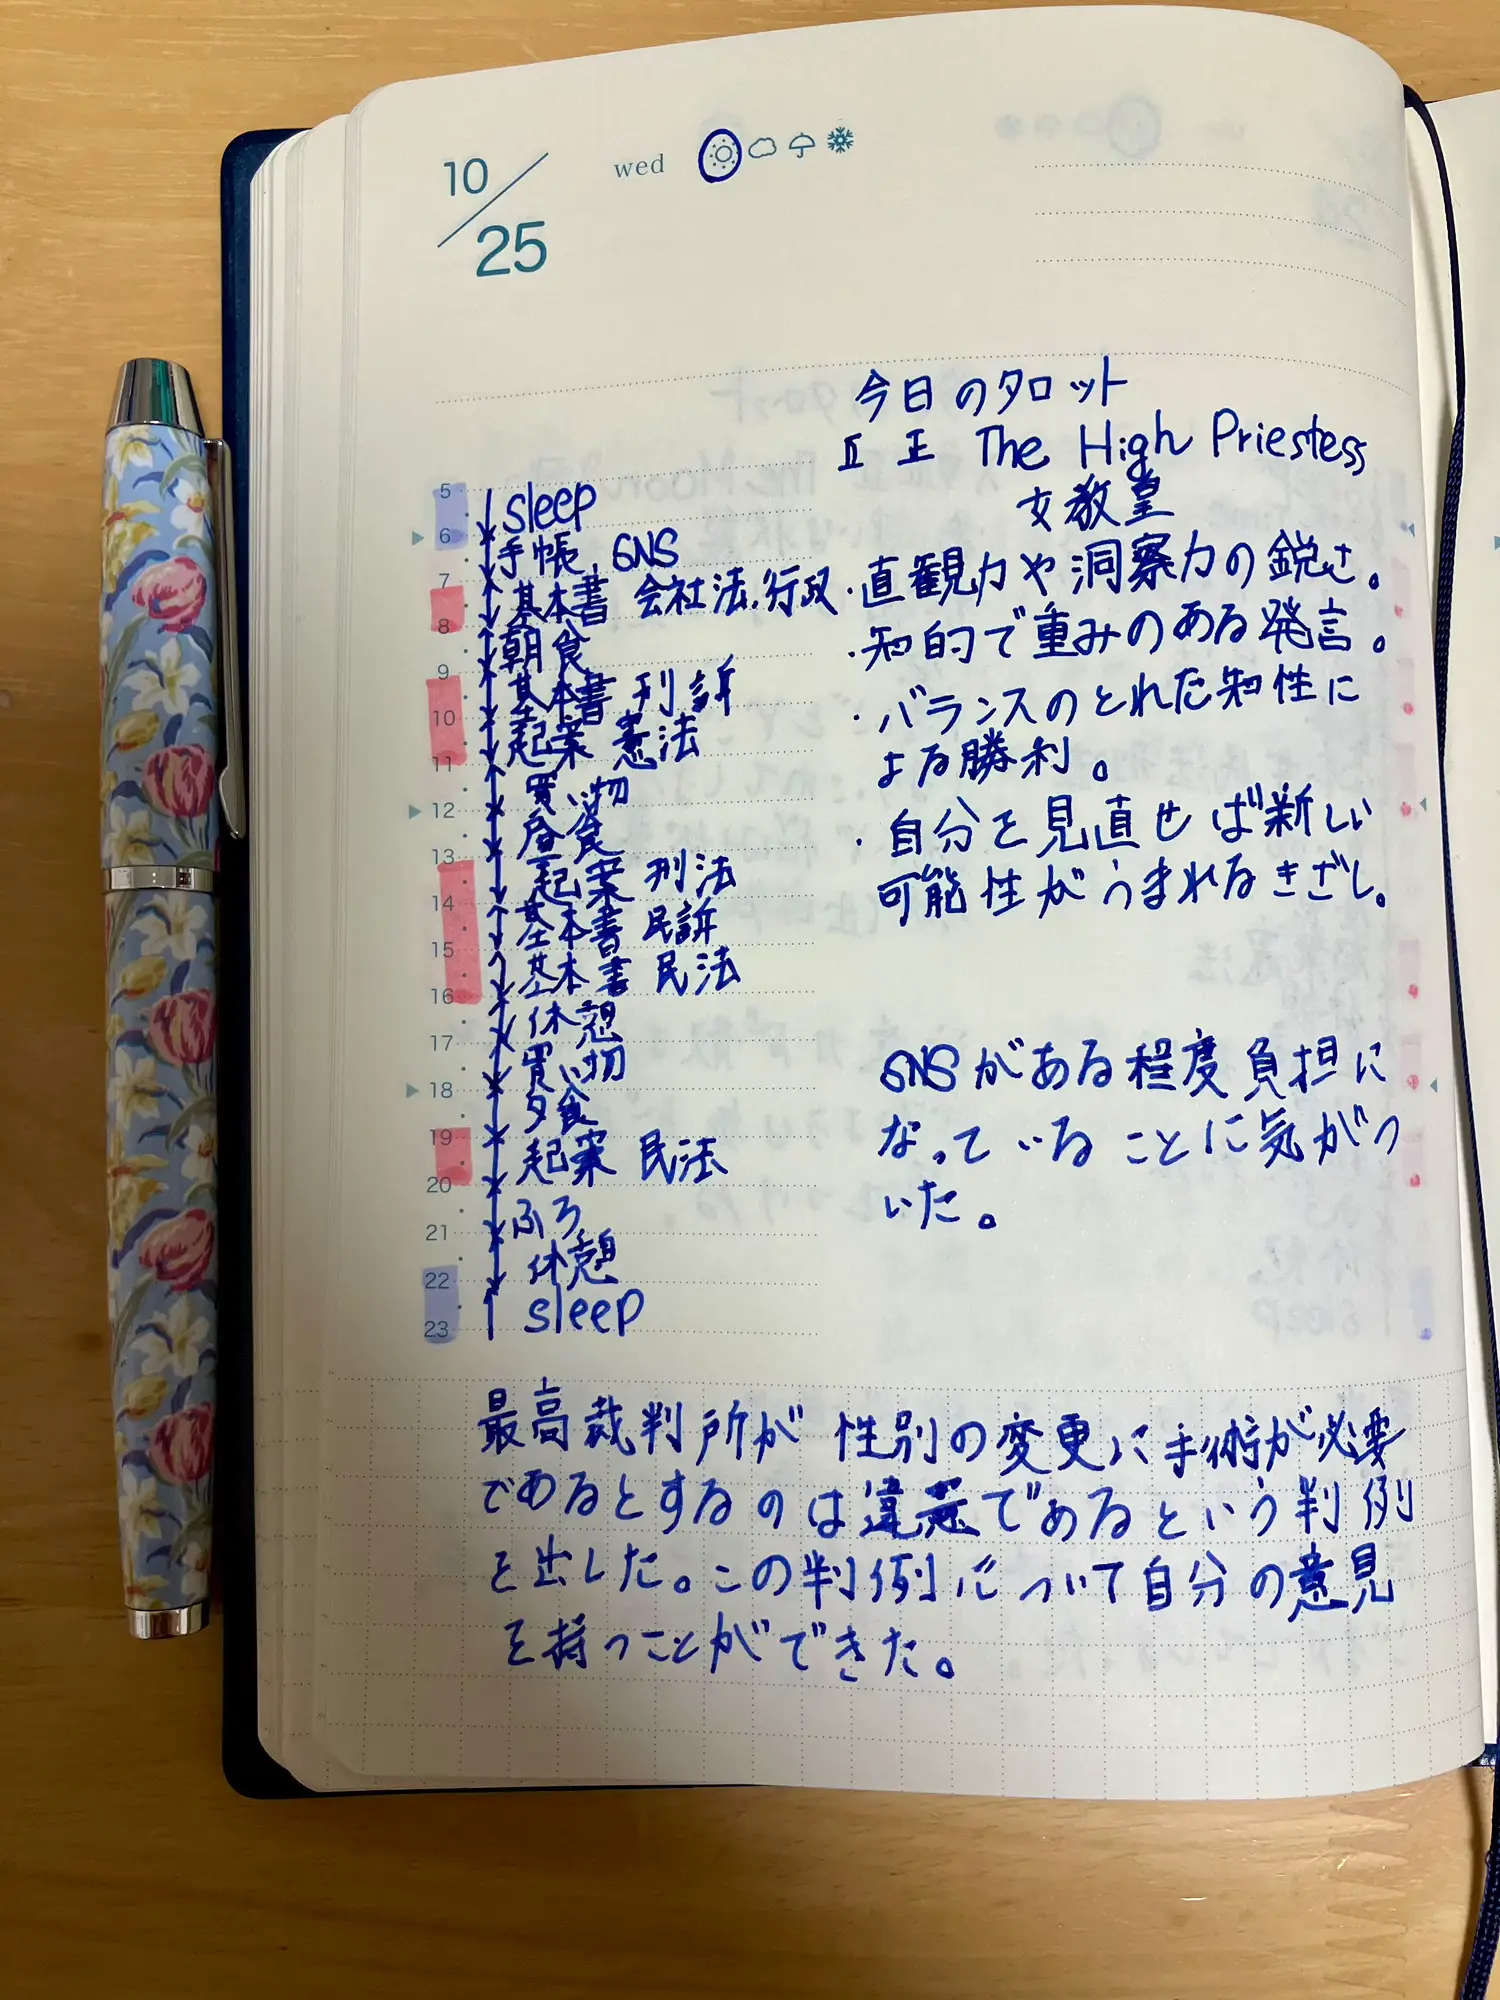 10/25 wed
今日のタロット
Ⅱ 正 The High Priestess
女教皇
・直観力や洞察力の鋭さ。
・知的で重みのある発言。
・バランスのとれた知性に
よる勝利。
・自分を見直せば新しい
可能性がうまれるきざし。
SNSがある程度負担に
なっていることに気がつ
いた。
5 sleep
6 手帳、SNS
7 基本書 会社法、行政
8 朝食
9 基本書 刑訴
10 起案 憲法
11 買い物
12 昼食
13 起案 刑法
14 基本書 民訴
15 基本書 民法
16 休憩
17 買い物
18 夕食
19 起案 民法
20 ふろ
21 休憩
22 sleep
23
最高裁判所が性別の変更に手術が必要
であるとするのは違憲であるという判例
を出した。この判例について自分の意見
を持つことができた。